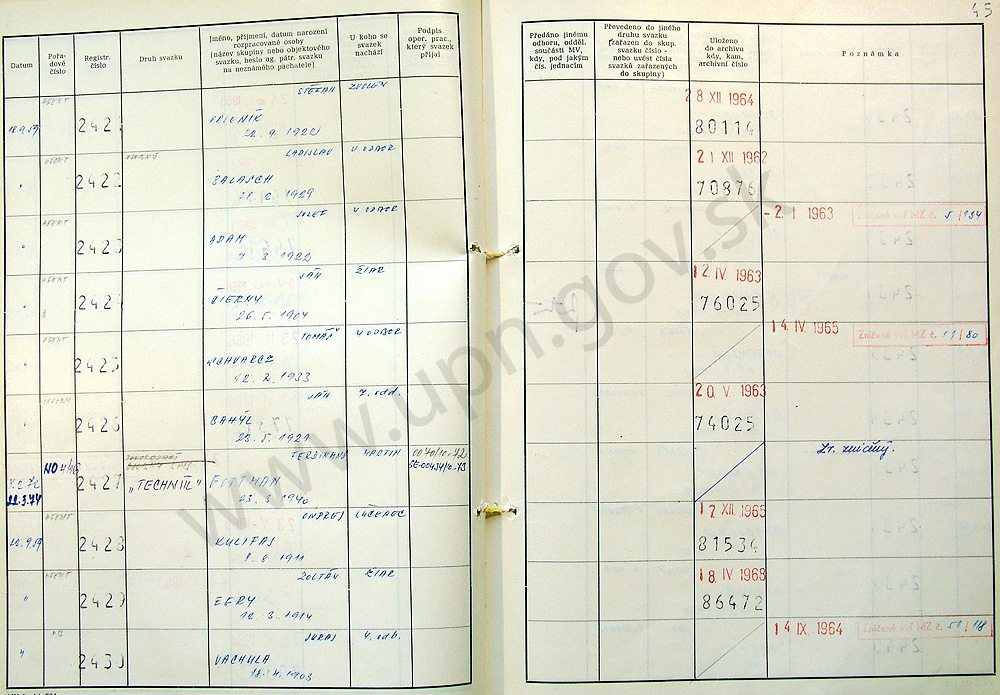 45
Datum
Pořa-
dové
číslo
Registr.
číslo
Druh svazku
Jméno, příjmení, datum narození
rozpracované osoby
(název skupiny nebo objektového
svazku, heslo ag. pátr. svazku
na neznámého pachatele)
U koho se
svazek
nachází
Podpis
oper. prac.,
který svazek
přijal
Předáno jinému
odboru, odděl.
součásti MV,
kdy, pod jakým
čís. jednacím
Převedeno do jiného
druhu svazku
(zařazen do skup.
svazku číslo -
nebo uvést čísla
svazků zařazených
do skupiny)
Uloženo
do archivu
kdy, kam,
archivní číslo
Poznámka
AGENT ŠTEFAN ZVOLEN 28 XII 1964
18.9.59 2421 22.9.1922 80114
AGENT LADISLAV V ODBOR 21 XII 1962
" 2422 BALASCH 1929 70876
AGENT JOZEF V ODBOR - 2. I 1963 Zničené viď MZ č. 5/154
" 2423 ADAM 1922
AGENT JÁN ŽIAR 12. IV 1963
2424 ČIERNY 26.5.1904 76025
AGENT TOMÁŠ V ODBOR 14. IV. 1965 Zničené viď MZ č. 51/80
" 2425 12.2.1933
JÁN 7. odd. 20. V. 1963
" 2426 BAHÝL 23.5.1921 74025
FERDINAND MARTIN Zv. zničený.
22.3.74 2427 „TECHNIK" FITTMAN 1940
AGENT ONDREJ LUČENEC 17 XII. 1965
18.9.59 2428 KULIFAJ 8.8.1911 81534
AGENT ZOLTÁN ŽIAR 18 IV 1968
" 2429 EGRY 12.3.1914 86472
JURAJ V. odb. 14 IX. 1964 Zničené viď MZ č. 51/18
" 2430 VACHULA 1903
www.upn.gov.sk